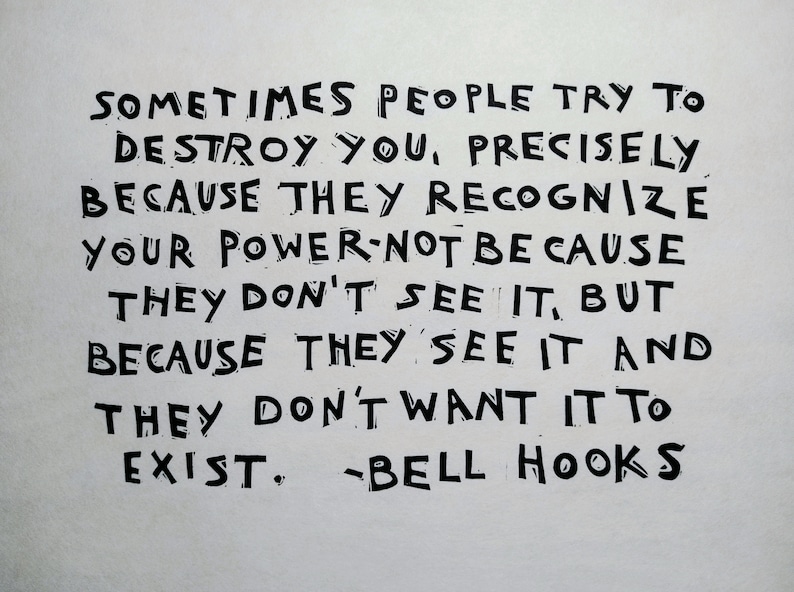 SOMETIMES PEOPLE TRY TO
DESTROY YOU, PRECISELY
BECAUSE THEY RECOGNIZE
YOUR POWER-NOT BECAUSE
THEY DON'T SEE IT, BUT
BECAUSE THEY SEE IT AND
THEY DON'T WANT IT TO
EXIST. -BELL HOOKS